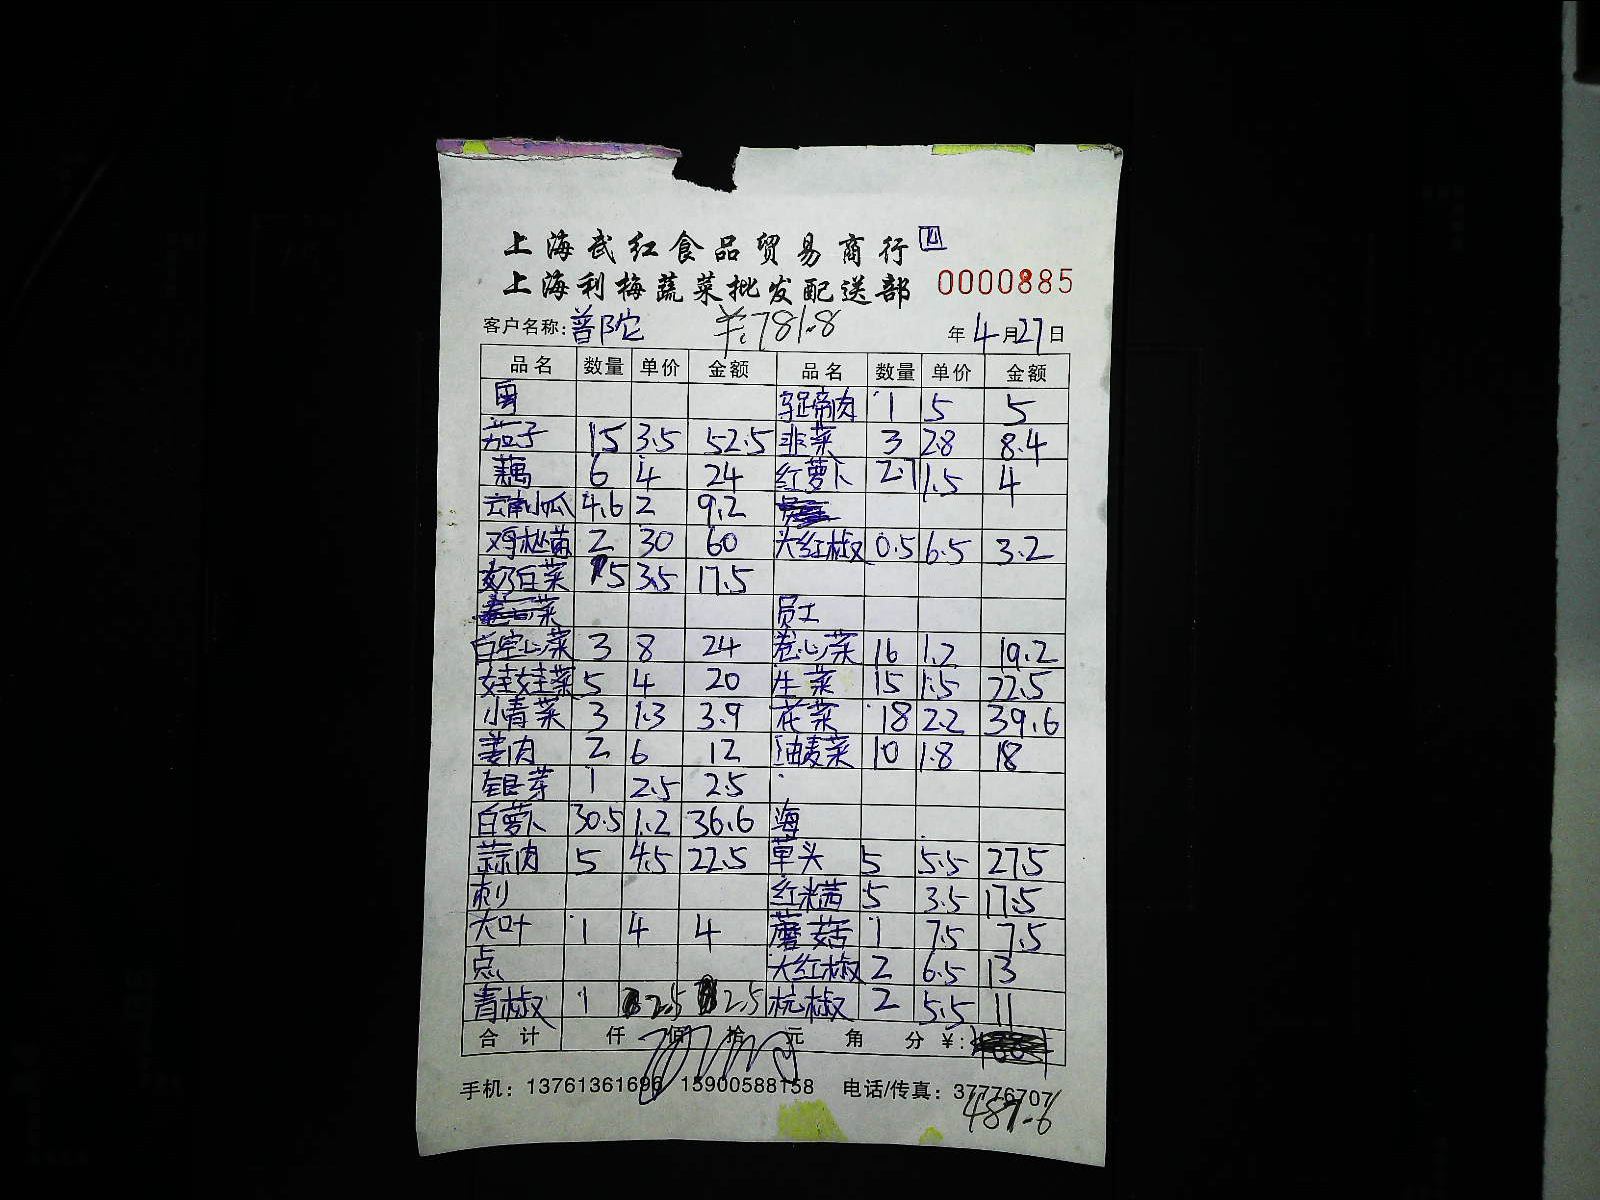 上海武红食品贸易商行 四
上海利梅蔬菜批发配送部 0000885
客户名称: 普陀 ¥:781.8 年 4 月 27 日
品名 数量 单价 金额 品名 数量 单价 金额
粤 1 5 5
茄子 15 3.5 52.5 韭菜 3 2.8 8.4
藕 6 4 24 红萝卜 2.7 1.5 4
云南小瓜 4.6 2 9.2
鸡枞菌 2 30 60 大红椒 0.5 6.5 3.2
奶白菜 5 3.5 17.5
员工
白空心菜 3 8 24 卷心菜 16 1.2 19.2
娃娃菜 5 4 20 生菜 15 1.5 22.5
小青菜 3 1.3 3.9 花菜 18 2.2 39.6
姜肉 2 6 12 油麦菜 10 1.8 18
银芽 1 2.5 2.5
白萝卜 30.5 1.2 36.6 海
蒜肉 5 4.5 22.5 草头 5 5.5 27.5
刺 红米苋 5 3.5 17.5
大叶 1 4 4 蘑菇 1 7.5 7.5
点 大红椒 2 6.5 13
青椒 1 2.5 2.5 杭椒 2 5.5 11
合计 仟 佰 拾 元 角 分 ¥:
手机: 13761361696 15900588158 电话/传真: 37776707
487.6